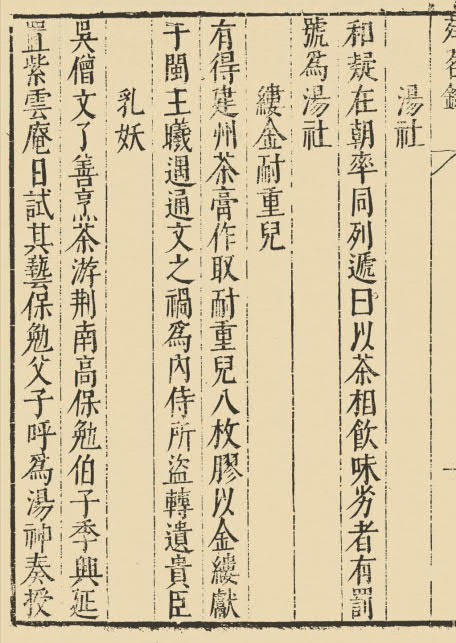 荈茗錄
湯社
和凝在朝率同列遞日以茶相飲味劣者有罰
號為湯社
縷金耐重兒
有得建州茶膏作取耐重兒八枚膠以金縷獻
于閩王曦遇通文之禍為內侍所盜轉遺貴臣
乳妖
吳僧文了善烹茶游荆南高保勉伯子季興延
置紫雲庵日試其藝保勉父子呼為湯神奏授